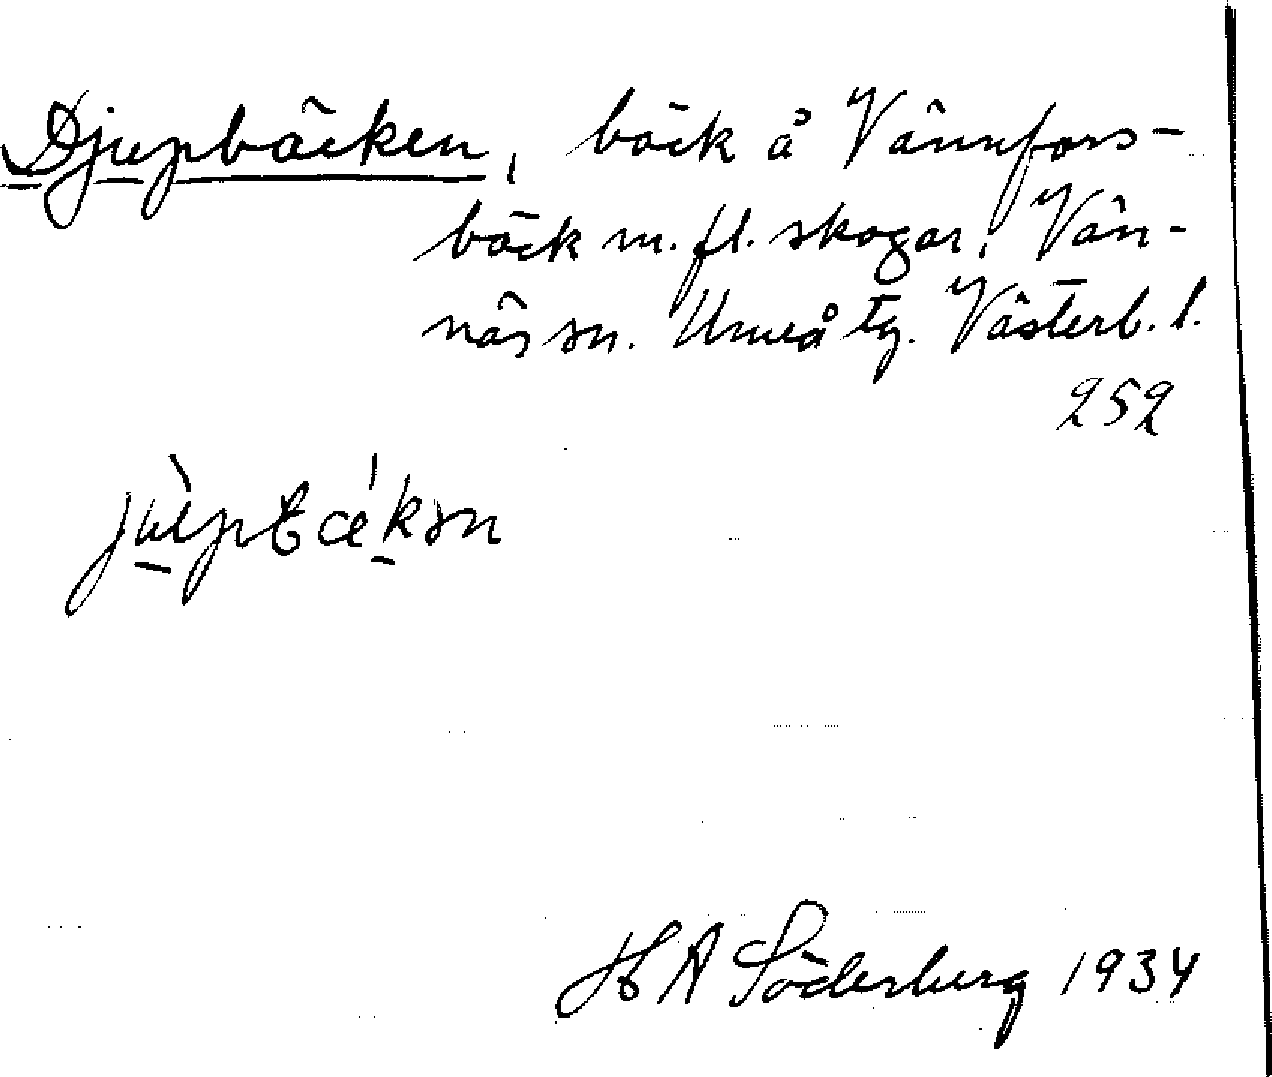 Djupbäcken, bäck å Vännfors-
bäck m. fl. skogar, Vän-
näs sn. Umeå tg. Västerb. l.
252
H A Söderberg 1934